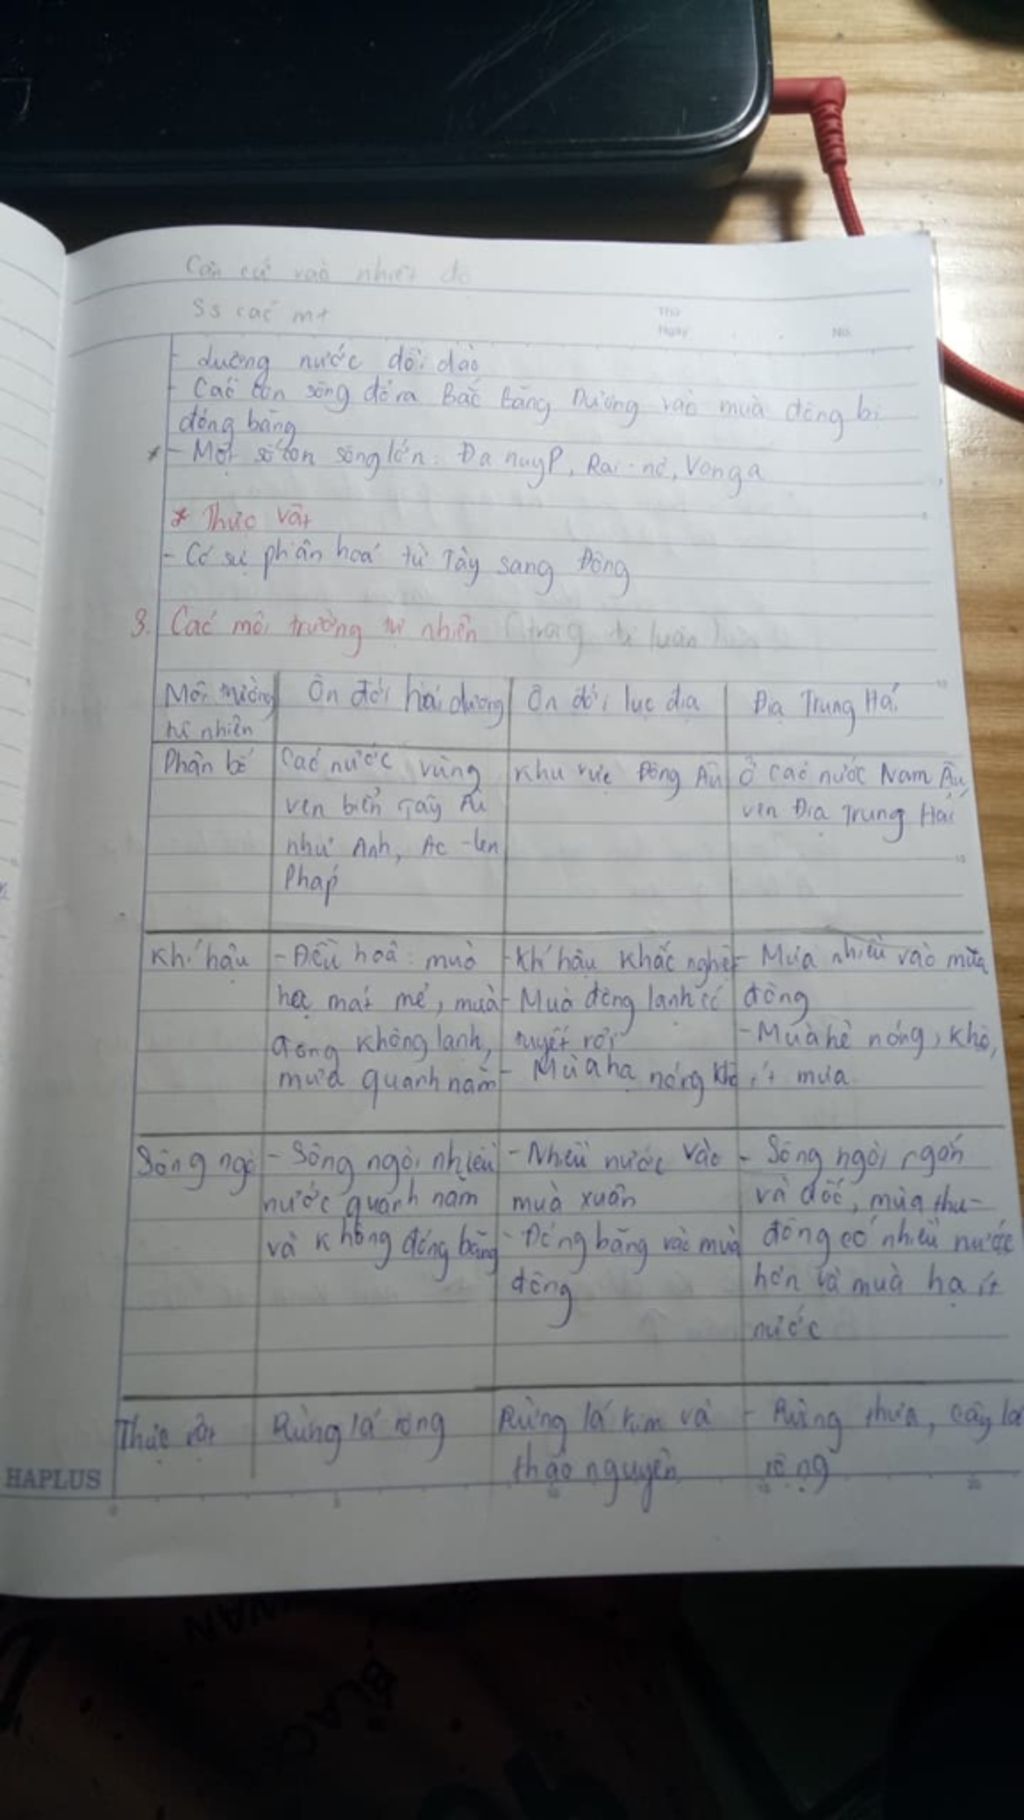 Căn cứ vào nhiệt độ
Ss các mt
Thứ
Ngày No.
- lượng nước dồi dào
- Các con sông đổ ra Bắc Băng Dương vào mùa đông bị
đóng băng
* - Một số con sông lớn: Đa nuyp, Rai-nơ, Vonga
* Thực vật
- Có sự phân hoá từ Tây sang Đông
3. Các môi trường tự nhiên (trong tự luận)
Môi trường Ôn đới hải dương Ôn đới lục địa Địa Trung Hải
tự nhiên
Phân bố Các nước vùng Khu vực Đông Âu Ở các nước Nam Âu,
ven biển Tây Âu ven Địa Trung Hải
như Anh, Ac-len
Pháp
Khí hậu - Điều hoà: mùa - Khí hậu khắc nghiệt - Mưa nhiều vào mùa
hạ mát mẻ, mùa - Mùa đông lạnh có đông
đông không lạnh, tuyết rơi - Mùa hè nóng, khô,
mưa quanh năm - Mùa hạ nóng khô ít mưa
Sông ngòi - Sông ngòi nhiều - Nhiều nước vào - Sông ngòi ngắn
nước quanh năm mùa xuân và dốc, mùa thu-
và không đóng băng - Đóng băng vào mùa đông có nhiều nước
đông hơn và mùa hạ ít
nước
Thực vật Rừng lá rộng Rừng lá kim và - Rừng thưa, cây lá
thảo nguyên rộng
HAPLUS
0 5 10 15 20